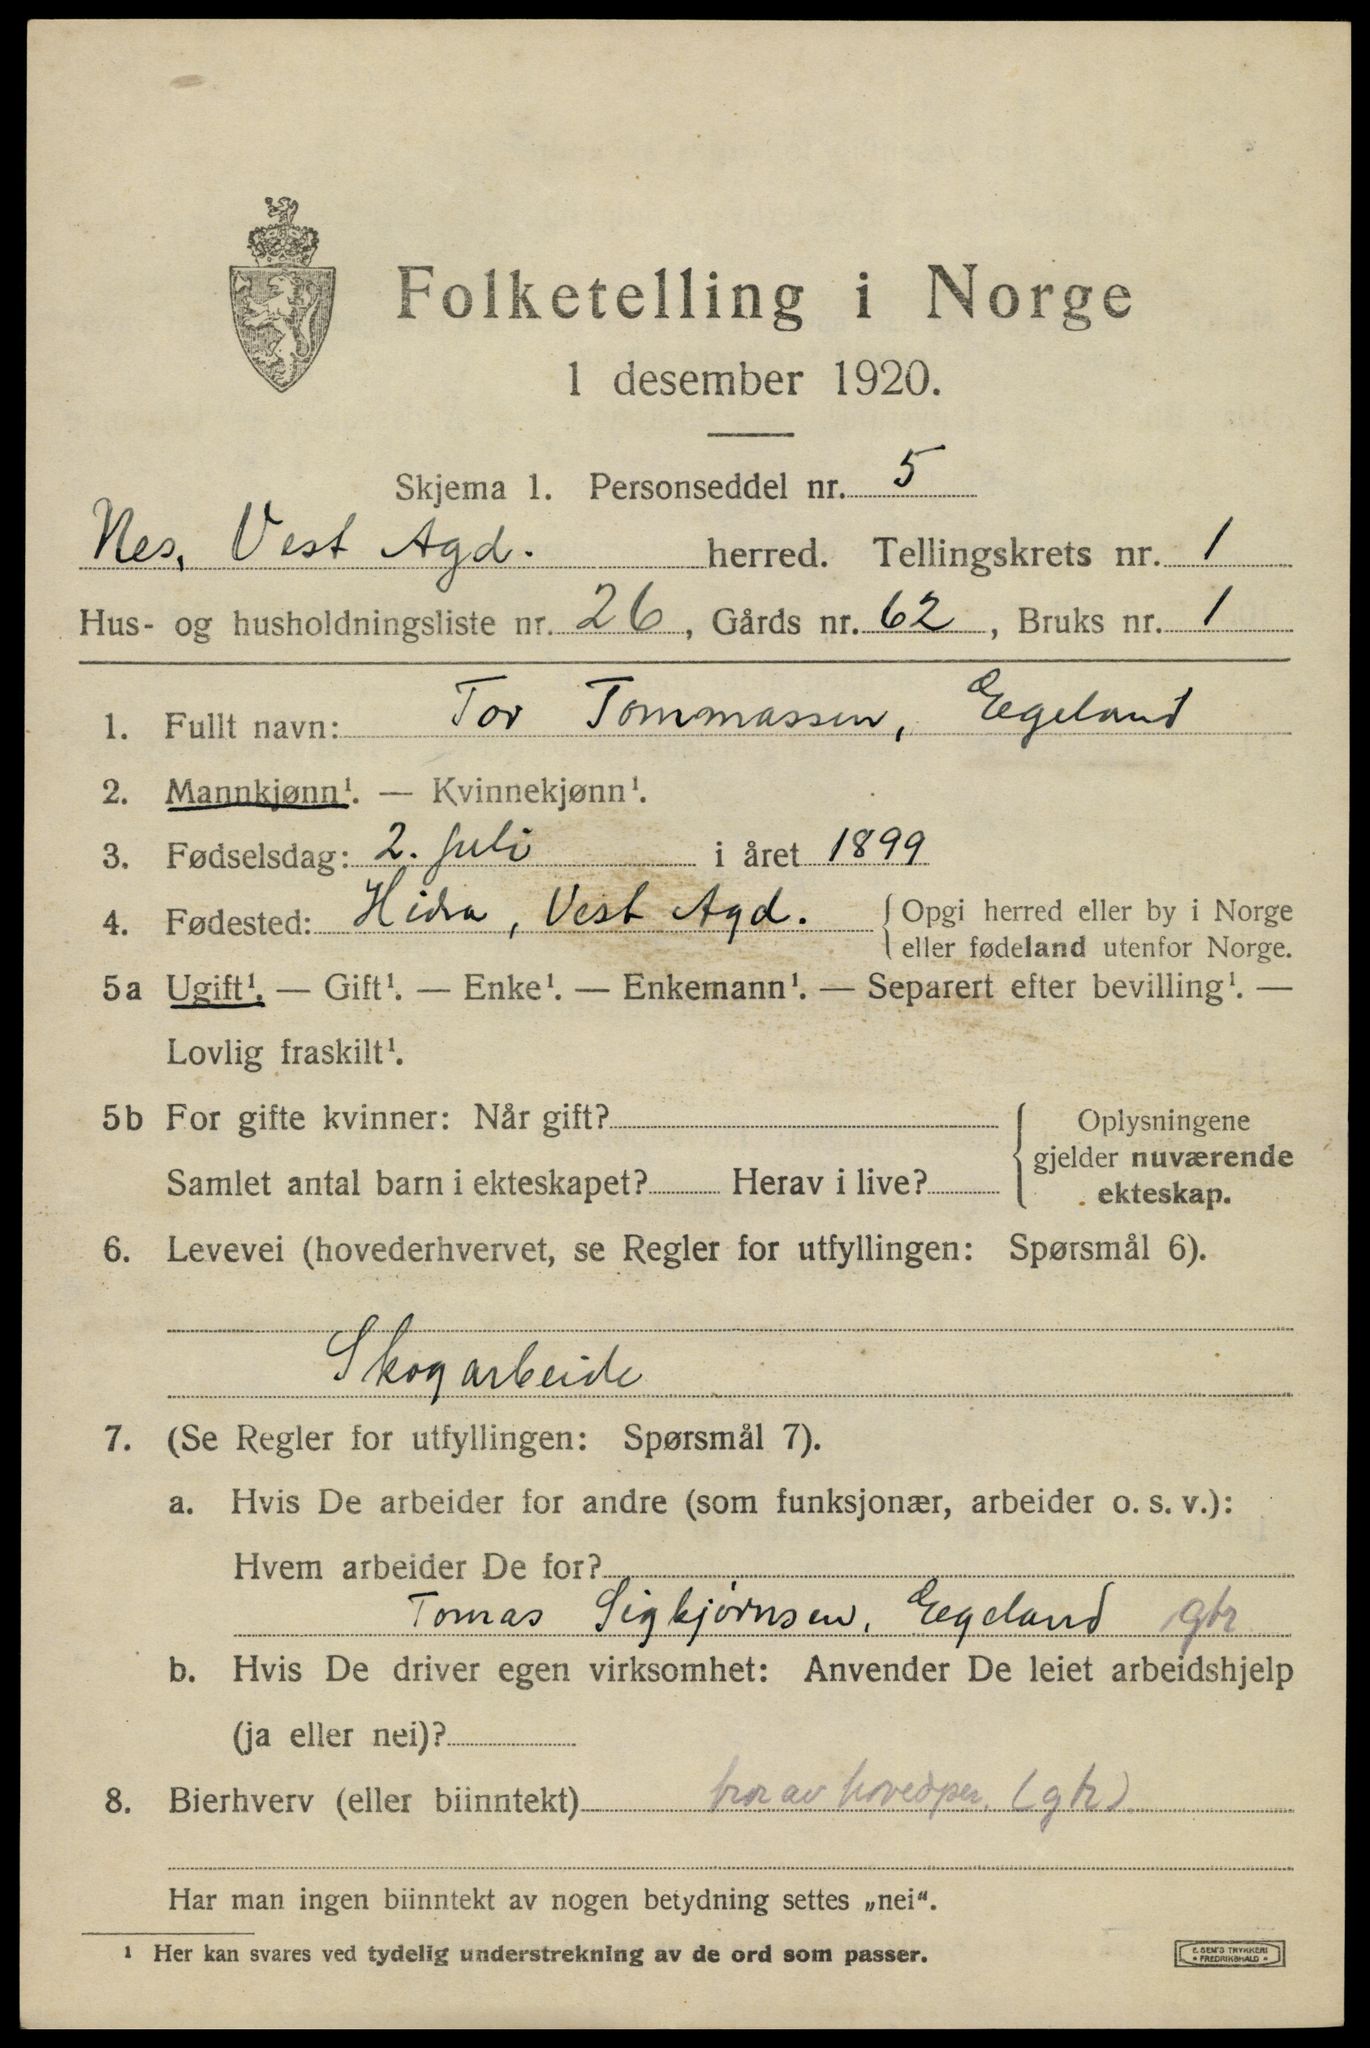 Folketelling i Norge
1 desember 1920.
Skjema 1. Personseddel nr. 5
Nes, Vest Agd. herred. Tellingskrets nr. 1
Hus- og husholdningsliste nr. 26, Gårds nr. 62, Bruks nr. 1
1. Fullt navn: Tor Tommassen, Eegeland
2. Mannkjønn¹. — Kvinnekjønn¹.
3. Fødselsdag: 2. juli i året 1899
4. Fødested: Hidra, Vest Agd. { Opgi herred eller by i Norge
eller fødeland utenfor Norge.
5a Ugift¹. — Gift¹. — Enke¹. — Enkemann¹. — Separert efter bevilling¹. —
Lovlig fraskilt¹.
5b For gifte kvinner: Når gift?
Samlet antal barn i ekteskapet? Herav i live?
Oplysningene
gjelder nuværende
ekteskap.
6. Levevei (hovederhvervet, se Regler for utfyllingen: Spørsmål 6).
Skogarbeide
7. (Se Regler for utfyllingen: Spørsmål 7).
a. Hvis De arbeider for andre (som funksjonær, arbeider o. s. v.):
Hvem arbeider De for?
Tomas Sigbjørnsen, Eegeland gbr
b. Hvis De driver egen virksomhet: Anvender De leiet arbeidshjelp
(ja eller nei)?
8. Bierhverv (eller biinntekt) av hovedper. (gbr)
Har man ingen biinntekt av nogen betydning settes „nei“.
¹ Her kan svares ved tydelig understrekning av de ord som passer.
E. SEM'S TRYKKERI
• FREDRIKSHALD •